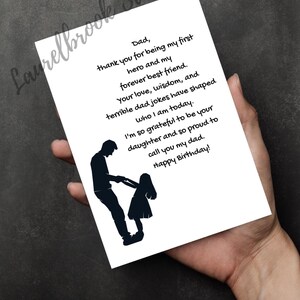 Laurelbrook
Dad,
thank you for being my first
hero and my
forever best friend.
Your love, wisdom, and
terrible dad jokes have shaped
who I am today.
I'm so grateful to be your
daughter and so proud to
call you my dad.
Happy Birthday!